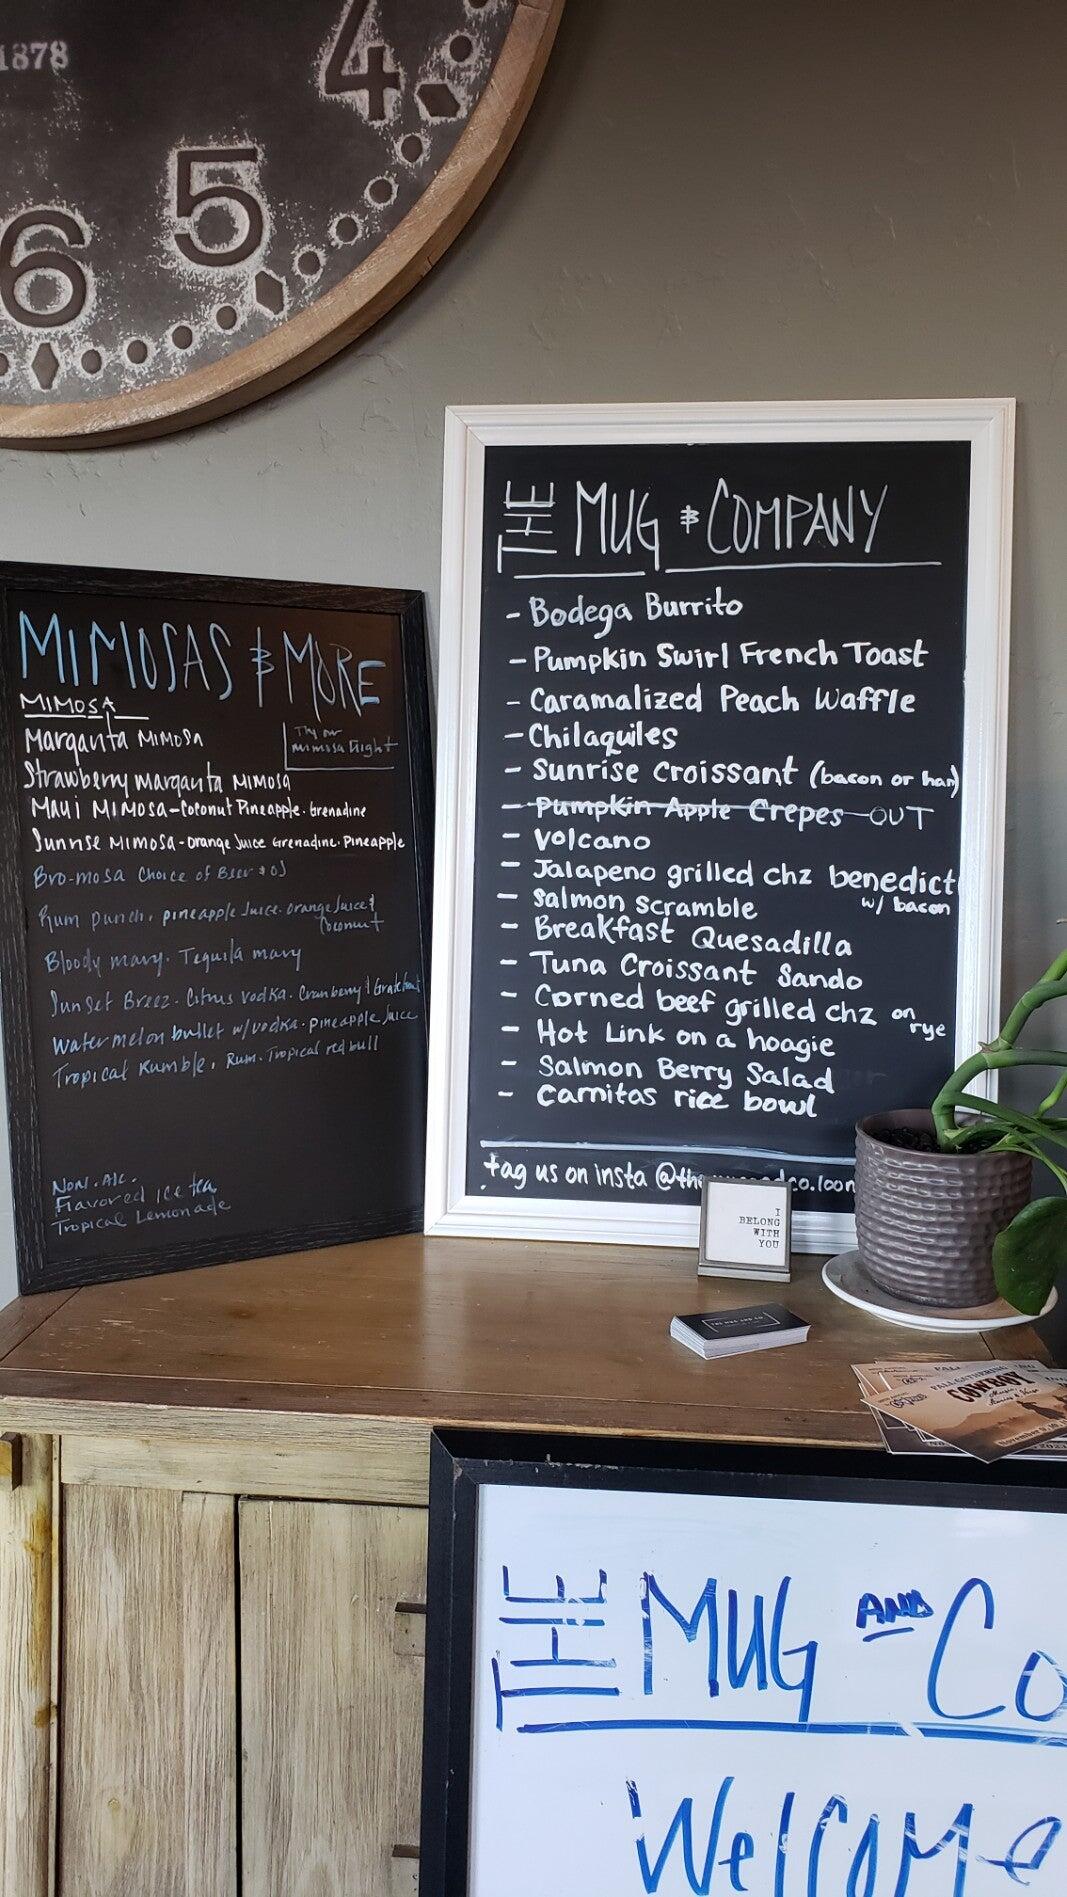 1878
4
5
6
MIMOSAS & MORE
MIMOSA
Margarita MIMOSA
Try our
mimosa flight
Strawberry margarita MIMOSA
Maui MIMOSA-Coconut Pineapple. Grenadine
Sunrise MIMOSA-orange Juice Grenadine. Pineapple
Bro-mosa Choice of Beer & OJ
Rum punch. pineapple Juice. orange Juice &
Coconut
Bloody mary. Tequila mary
Sunset Breez. Citrus vodka. Cranberry &
Watermelon bullet w/vodka. pineapple Juice
Tropical Rumble. Rum. Tropical red bull
Non. Alc.
Flavored Ice tea
Tropical Lemonade
THE MUG & COMPANY
- Bodega Burrito
- Pumpkin Swirl French Toast
- Caramalized Peach Waffle
- Chilaquiles
- Sunrise Croissant (bacon or ham)
- Pumpkin Apple Crepes-OUT
- Volcano
- Jalapeno grilled chz benedict
w/ bacon
- Salmon scramble
- Breakfast Quesadilla
- Tuna Croissant Sando
- Corned beef grilled chz on
rye
- Hot Link on a hoagie
- Salmon Berry Salad
- Carnitas rice bowl
tag us on insta
I
BELONG
WITH
YOU
THE MUG AND CO
FALL GATHERING
COWBOY
THE MUG AND Co
Welcome